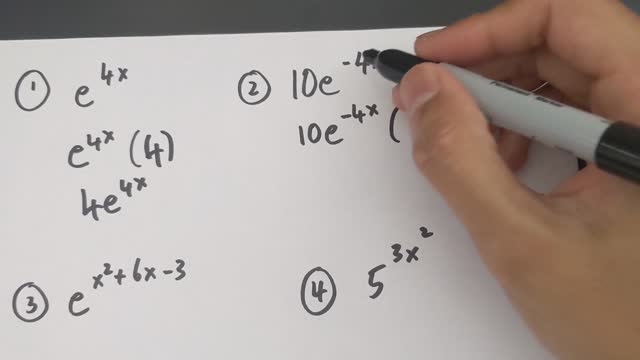 ① e^4x
e^4x (4)
4e^4x
② 10e^-4
10e^-4x (
③ e^x²+6x-3
④ 5^3x²